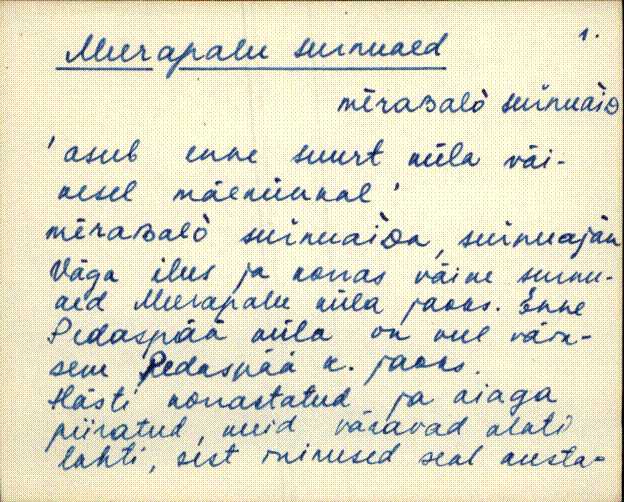 1.
Meerapalu surnuaed
mēraʙalò surnuàiᴅ
'asub enne suurt küla väi-
kesel mäekünkal'
mēraʙalò surnuaìᴅa, surnuaján
Väga ilus ja korras väike surnu-
aed Meerapalu küla jaoks. Enne
Pedaspää küla on veel väik-
sem Pedaspää k. jaoks.
Hästi korrastatud ja aiaga
piiratud, kuid väravad alati
lahti, sest inimesed seal austa-